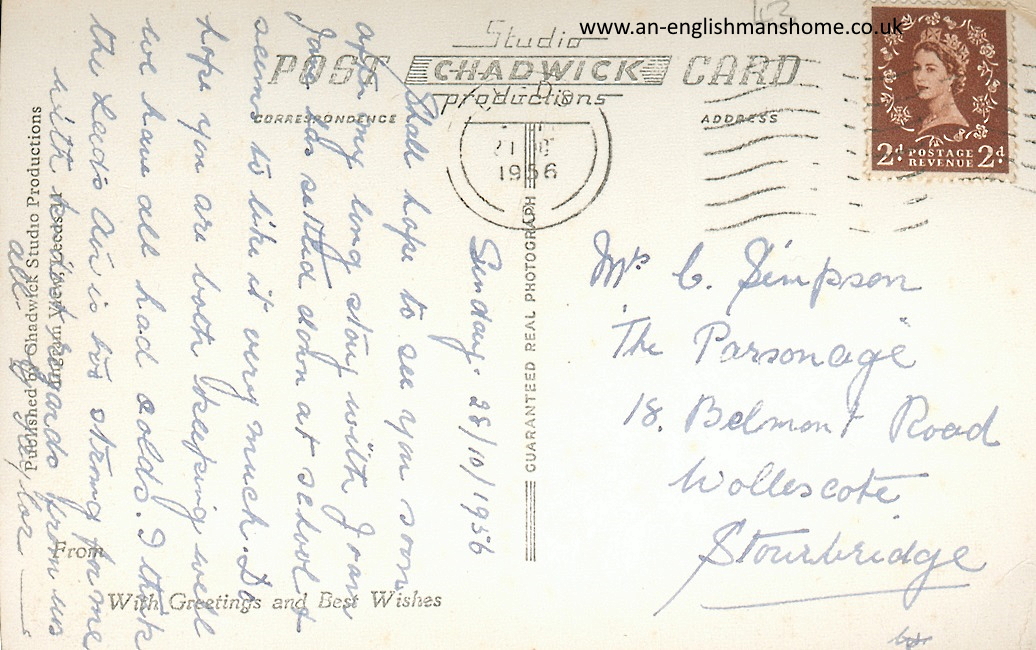 www.an-englishmanshome.co.uk
Studio
POST CHADWICK CARD
productions
CORRESPONDENCE
ADDRESS
1956
2d POSTAGE REVENUE 2d
GUARANTEED REAL PHOTOGRAPH
Sunday. 28/10/1956
Shall hope to see you soon
after my long stay with Joan
Jane has settled down at school &
seems to like it very much. Do
hope you are both keeping well
we have all had colds. I think
the Leeds Air is too strong for me
with kindest regards from us
all.
Mrs C. Simpson
The Parsonage
18. Belmont Road
Wollescote
Stourbridge
Published by Chadwick Studio Productions
View, Leeds
From
With Greetings and Best Wishes